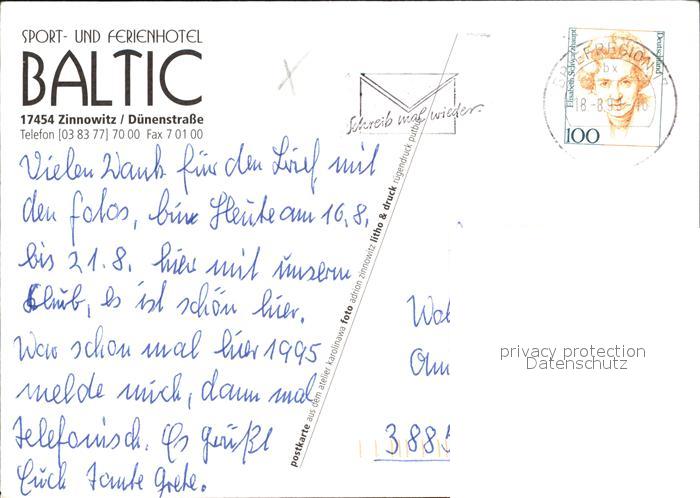 SPORT- UND FERIENHOTEL
BALTIC
17454 Zinnowitz / Dünenstraße
Telefon [03 83 77] 70 00 Fax 7 01 00
Vielen Dank für den Brief mit
den Fotos, bin Heute am 16.8.
bis 21.8. hier mit unserm
Klub, es ist schön hier.
War schon mal hier 1995
melde mich, dann mal
telefonisch. Es grüßt
Euch Tante Grete.
postkarte aus dem atelier karolinawa foto adrion zinnowitz litho & druck rügendruck putbus
Schreib mal wieder.
Deutschland
Elisabeth Schwarzhaupt
100
BRIEFREGION
bx
18.-8.9
privacy protection
Datenschutz
3885